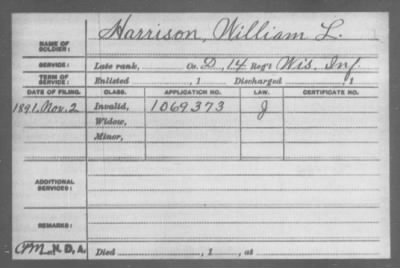 NAME OF SOLDIER: Harrison, William L.
SERVICE: Late rank, Co. D, 14 Reg't Wis. Inf.
TERM OF SERVICE: Enlisted , 1 Discharged , 1
DATE OF FILING. CLASS. APPLICATION NO. LAW. CERTIFICATE NO.
1891, Nov. 2 Invalid, 1069373 J
Widow,
Minor,
ADDITIONAL SERVICES:
REMARKS:
N. D. A. Died , 1 , at